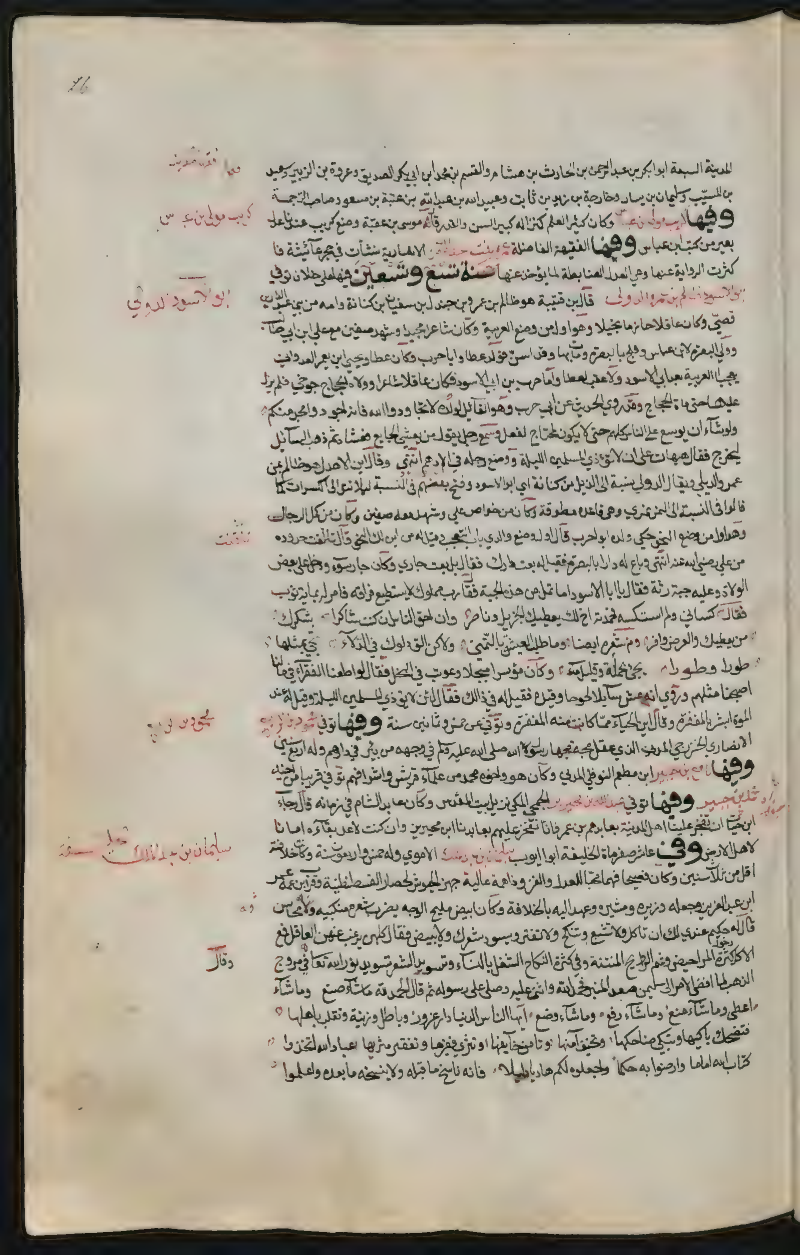 المدينة السبعة ابو بكر بن عبد الرحمن بن الحارث بن هشام والقسيم بن محمد ابن ابي بكر الصديق وعروة بن الزبير وسعيد
بن المسيب وسليمان بن يسار وخارجة بن زيد بن ثابت وعبيد الله بن عبد الله بن عتبة بن مسعود صاحب الترجمة
وفيها كريب مولى بن عباس وكان كثير العلم كبير السن والقدر قال موسى بن عقبة وضع كريب عندنا عدل
بعير من كتب ابن عباس وفيها الفقيهة الفاضلة عمرة بنت عبد الرحمن الانصارية نشأت في حجر عائشة فا
كثرت الرواية عنها وهي العدل الضابطة لما يؤخذ عنها سنة تسع وتسعين فيها على خلاف توفي
ابو الاسود ظالم بن عمرو الدولي قال بن قتيبة هو ظالم بن عمرو بن جندل بن سفيان بن كنانة وامه من بني عبد الدار بن
قصي وكان عاقلا حازما بخيلا وهو اول من وضع العربية وكان شاعرا مجيدا وشهد صفين مع علي بن ابي طالب
وولي البصرة لابن عباس وفلج بالبصرة ومات بها وقد اسن فولد عطا وابا حرب وكان عطا ويحيى ابن يعمر العدواني
يعجما العربية بعد ابي الاسود ولا عقب لعطا واما حرب بن ابي الاسود فكان عاقلا شاعرا وولاه الحجاج جوخي فلم يزل
عليها حتى مات الحجاج وقد روي الحديث عن ابي حرب وهو القائل لولده لا تجاودوا الله فانه اجود وامجد منكم
ولو شاء ان يوسع على الناس كلهم حتى لا يكون محتاج لفعل وسمع رجلا يقول من يعشي الجايع فعشاه ثم ذهب السائل
ليخرج فقال هيهات على ان لا تؤذي المسلمين الليلة ووضع رجله في الادهم انتهى وقال ابن الاهدل هو ظالم بن
عمر والديلي ويقال الدولي نسبة الى الديل من كنانة ابي ابو الاسود وفتح بعضهم في النسبة ليلا توالى الكسرات كما
قالوا في النسبة الى النمر نمري وهي قاعدة مطروقة وكان من خواص علي وشهد معه صفين وكان من كمل الرجال
وهو اول من وضع النحو حكي ولده ابو حرب قال اول وضع والدي باب التعجب وقيل له من اين لك النحو قال تلقنت حدوده
من علي رضي الله عنه انتهى وباع له دارا بالبصرة فقيل له بعت دارك فقال بل بعت جاري وكان جار سوء ودخل على بعض
الولاة وعليه جبة رثة فقال يا ابا الاسود اما تمل من هذه الجبة فقال رب مملوك لا يستطيع فراقه فامر له بماية ثوب
فقال كساني ولم استكسه فحمدته اخ لك يعطيك الجزيل وناصر وان احق الناس ان كنت شاكرا بشكرك
من يعطيك والعرض وافر ومن شعره ايضا وما طلب العيش بالتمني ولكن الق دلوك في الدلاء تجي بمثلها
طورا وطورا تجي بحمأة وقليل ماء وكان موسرا مبجلا وعوتب في البخل فقال لو اطعنا الفقراء في مالنا
اصبحنا مثلهم وروي انه عشى سايلا الحوحا وقيده فقيل له في ذلك فقال لئن لا تؤذي المسلمين الليلة وقيل له عند
الموت ابشر بالمغفرة وقال اين الحياة مما كانت منه المغفرة وتوفي عن خمس وثمانين سنة وفيها توفي محمود بن الربيع
الانصاري الخزرجي المدني الذي عقل مجة مجها رسول الله صلى الله عليه وسلم في وجهه من بير في دارهم وله اربع سنين
وفيها نافع بن جبير ابن مطعم النوفلي المدني وكان هو واخوه محمد من علماء قريش واشرافهم توفي قريبا من اخيه
محمد بن جبير وفيها توفي عبد الله بن محيريز الجمحي المكي نزيل بيت المقدس وكان عابد الشام في زمانه قال رجاء
ابن حياة ان تفخر علينا اهل المدينة بعابدهم بن عمر فانا نفخر عليهم بعابدنا ابن محيريز وان كنت لاعد بقاءه امانا
لاهل الارض وفي عاشر صفر مات الخليفة ابو ايوب سليمان بن عبد الملك الاموي وله خمس واربعون سنة وكانت خلافته
اقل من ثلاث سنين وكان فصيحا فهما محبا للعدل والغزو ذا همة عالية جهز الجيوش لحصار القسطنطنية وقرب ابن عمه عمر
ابن عبد العزيز وجعله وزيره ومشيره وعهد اليه بالخلافة وكان ابيض مليح الوجه يضرب شعره منكبيه ولا ابس
قال له حكيم عندي لك ان تاكل ولا تشبع وتنكح ولا تفتر ويسود شعرك ولا يبيض فقال كلهن يرغب عنهن العاقل فمع
الاكل كثرة دخول المراحيض وشم الروايح المنتنة وفي كثرة النكاح الشغل بالنساء وتسويد الشعر تسويد نور الله تعالى في مروج
الذهب لما افضى الامر الى سليمن صعد المنبر فحمد الله واثنى عليه وصلى على رسوله ثم قال الحمد لله ما شاء صنع وما شاء
اعطى وما شاء منع وما شاء رفع وما شاء وضع ايها الناس الدنيا دار غرور وباطل وزينة وتقلب باهلها
فتضحك باكيها وتبكي ضاحكها وتخيف آمنها وتامن خايفها وتثري فقيرها وتفقر مثريها عباد الله اتخذوا
كتاب الله اماما وارضوا به حكما واجعلوه لكم هاديا دليلا فانه ناسخ ما قبله ولا ينسخه ما بعده واعلموا
كريب مولى بن عباس
ابو الاسود الدولي
محمود بن الربيع
سليمان بن عبد الملك
وقال